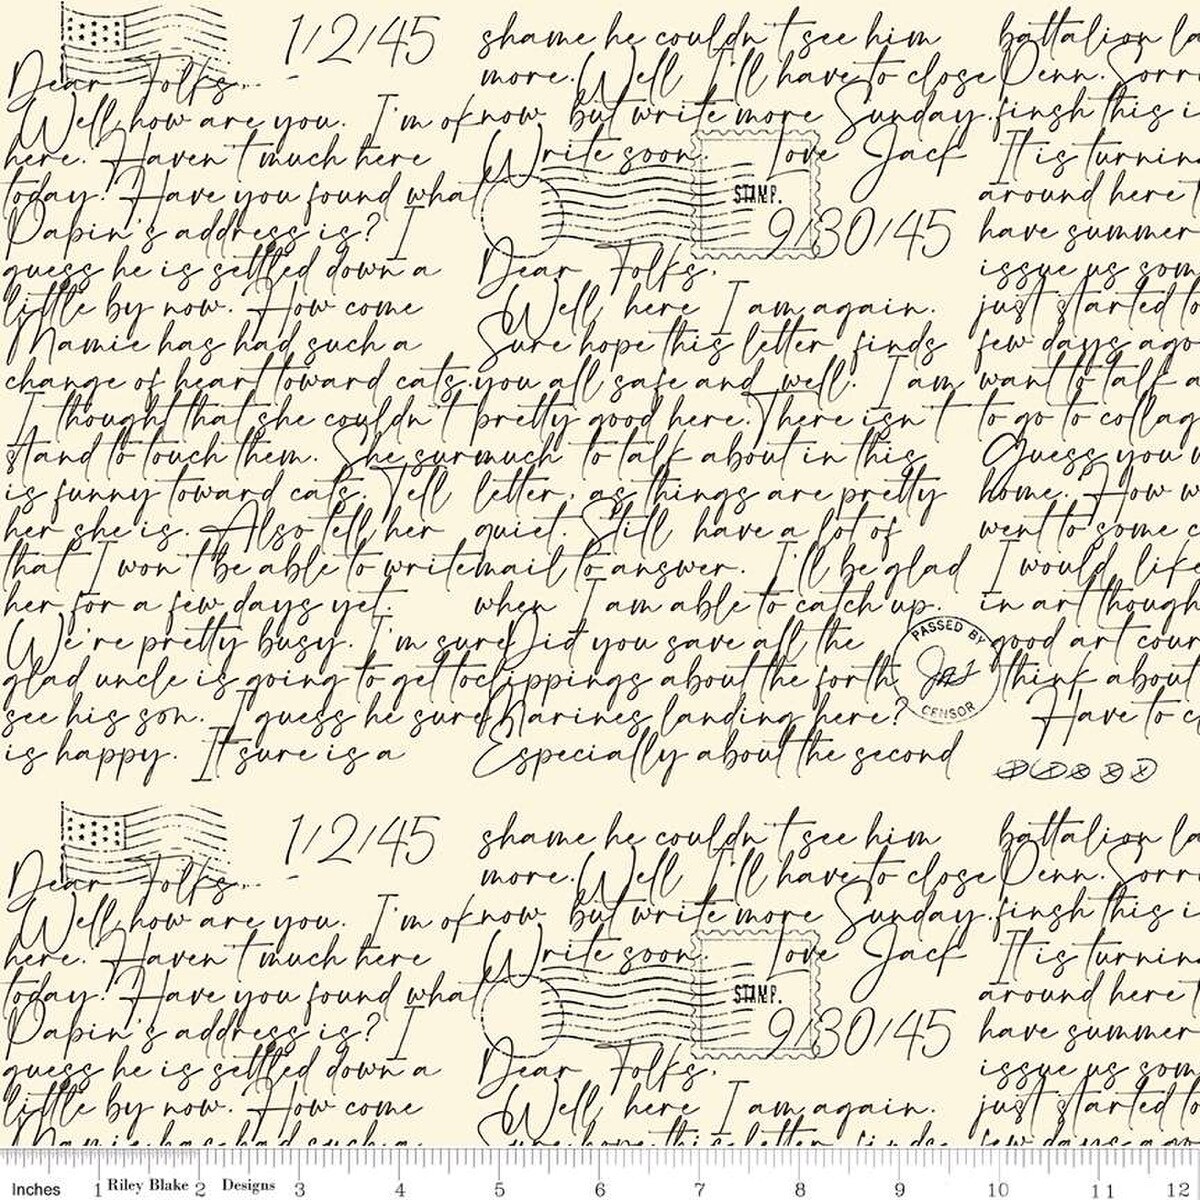 1/2/45
Dear Folks,
Well how are you. I'm ok
here. Haven't much here
today. Have you found what
Dabin's address is? I
guess he is settled down a
little by now. How come
Mamie has had such a
change of heart toward cats.
I thought that she couldn't
stand to touch them. She sur
is funny toward cats. Tell
her she is. Also tell her
that I won't be able to write
her for a few days yet.
We're pretty busy. I'm sure
glad uncle is going to get to
see his son. I guess he sure
is happy. It sure is a
shame he couldn't see him
more. Well I'll have to close
now but write more Sunday.
Write soon. Love Jack
STAMP.
9/30/45
Dear Folks,
Well here I am again.
Sure hope this letter finds
you all safe and well. I am
pretty good here. There isn't
much to talk about in this
letter, as things are pretty
quiet. Still have a lot of
mail to answer. I'll be glad
when I am able to catch up.
Did you save all the
clippings about the forth
Marines landing here?
Especially about the second
PASSED BY
CENSOR
battalion la
Penn. Sorr
finsh this i
It is turnin
around here t
have summer
issue us som
just started to
few days ago
want to talk a
to go to collag
Guess you w
home. How w
went to some c
I would like
in art though
good art cour
think about
Have to c
1/2/45
Dear Folks,
Well how are you. I'm ok
here. Haven't much here
today. Have you found what
Dabin's address is? I
guess he is settled down a
little by now. How come
Mamie has had such a
shame he couldn't see him
more. Well I'll have to close
now but write more Sunday.
Write soon. Love Jack
STAMP.
9/30/45
Dear Folks,
Well here I am again.
Sure hope this letter finds
battalion la
Penn. Sorr
finsh this i
It is turnin
around here t
have summer
issue us som
just started to
few days ago
Inches 1 Riley Blake 2 Designs 3 4 5 6 7 8 9 10 11 12